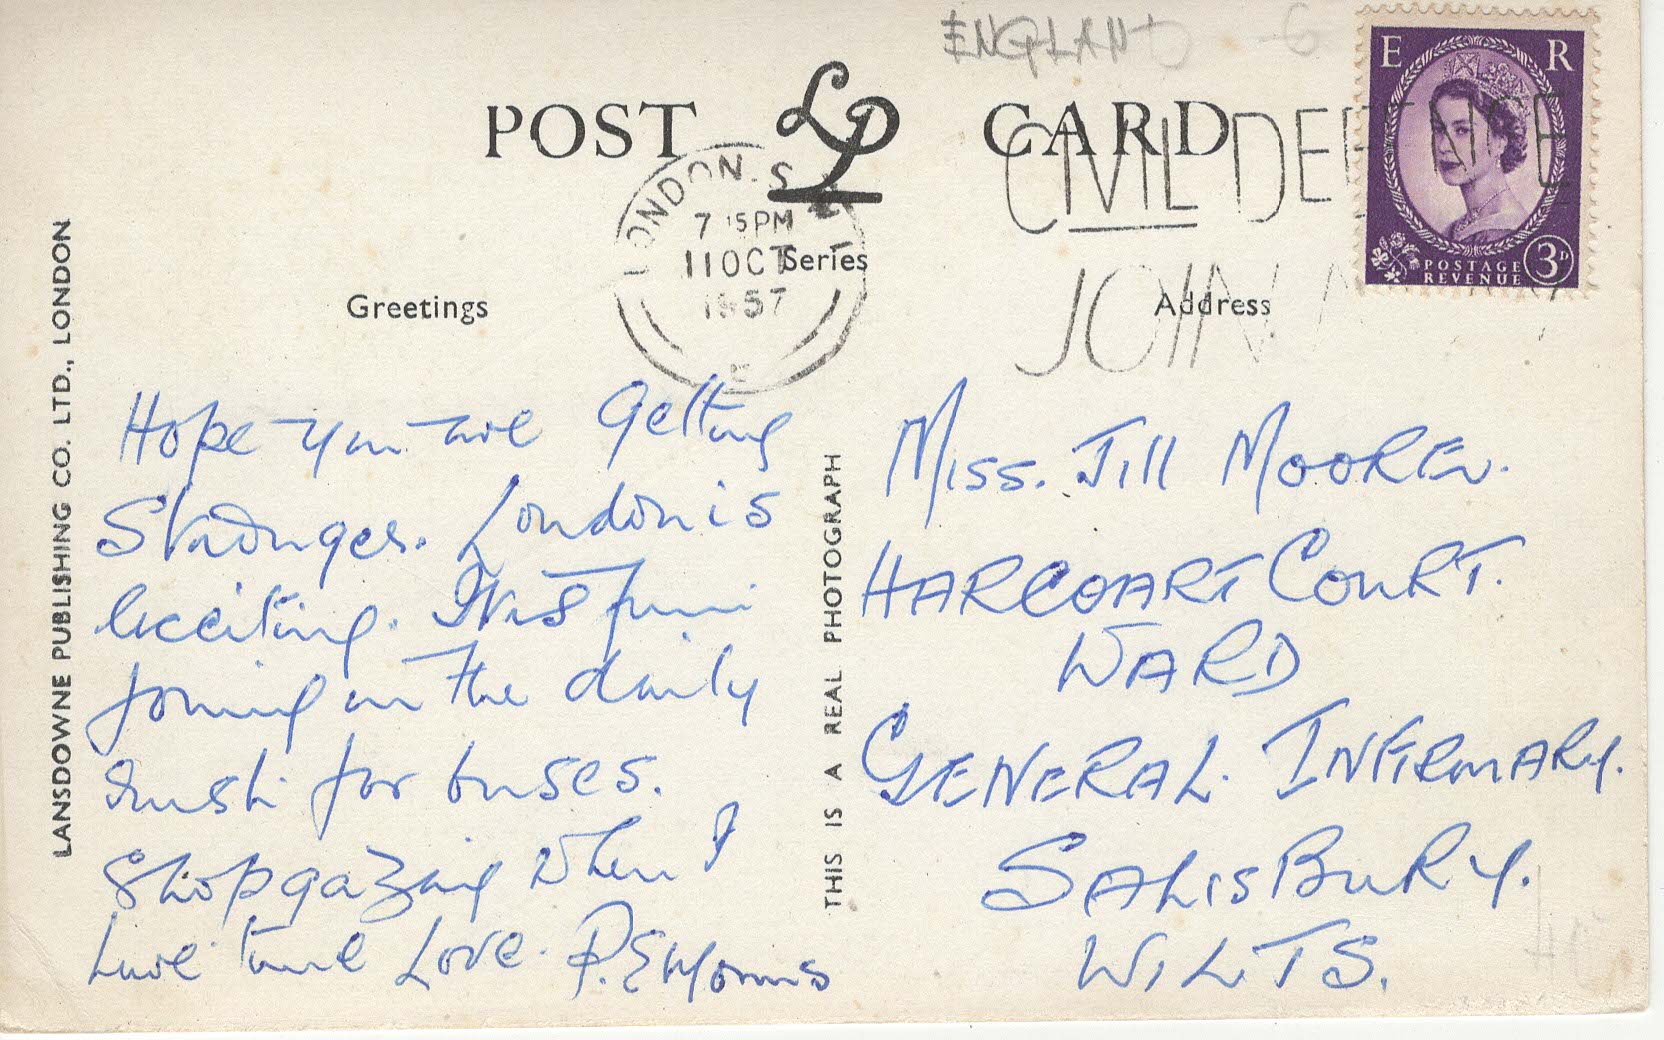 ENGLAND -6
POST LP CARD
E R
POSTAGE
REVENUE
3D
LONDON. S.
7 15PM
11 OCT
1957
CIVIL DEFENCE
JOIN
Series
Greetings
Address
LANSDOWNE PUBLISHING CO. LTD., LONDON
THIS IS A REAL PHOTOGRAPH
Hope you are getting
Stronger. London is
exciting. It is fun
joining in the daily
rush for buses.
Shopgazing when I
have time Love. P.
Miss. Jill MOORE.
HARCOART COURT.
WARD
GENERAL. INFIRMARY.
SALISBURY.
WILTS.